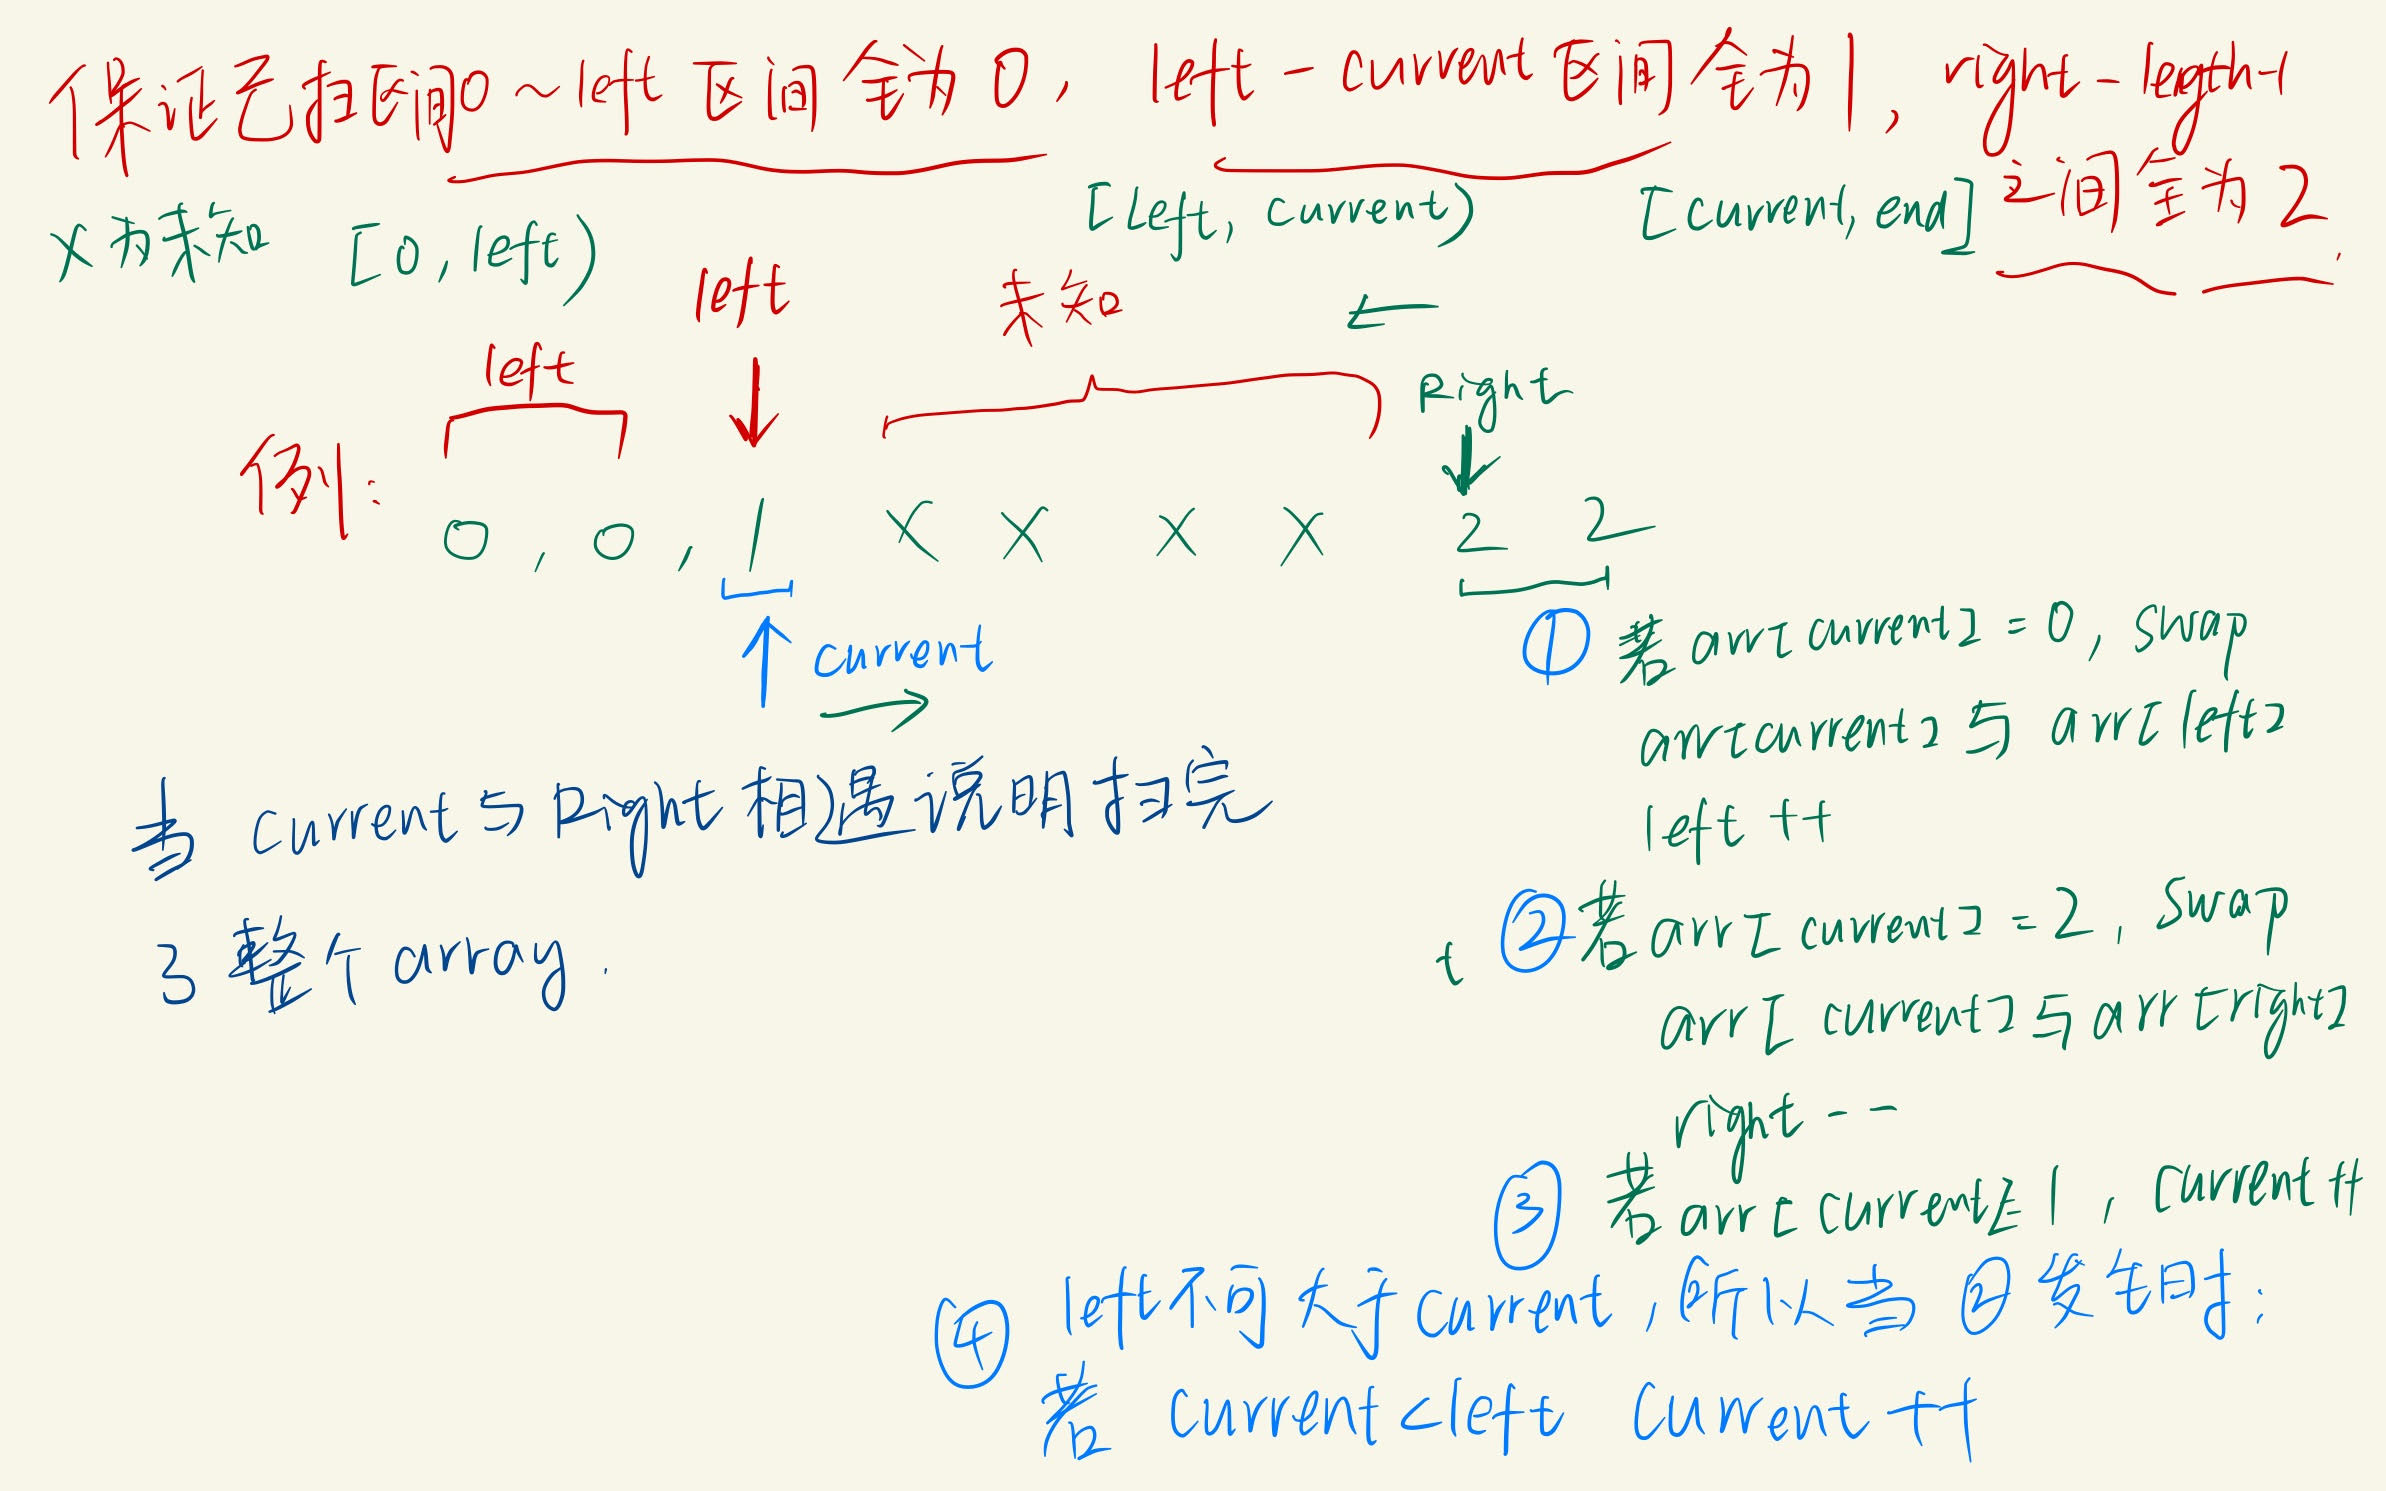 保证已扫区间0~left 区间全为 0, left - current 区间全为 1, right - legth-1
之间全为 2.
X为未知 [0, left) [left, current) [current, end]
left 未知
left Right
例:
0, 0, 1 X X X X 2 2
current
① 若 arr[current] = 0, swap
arr[current] 与 arr[left]
left ++
当 current 与 Right 相遇说明扫完
了整个 array.
t ② 若 arr[current] = 2, swap
arr[current] 与 arr[right]
right --
③ 若 arr[current] = 1, current ++
④ left 不可大于 current, 所以当 ② 发生时:
若 current < left current ++